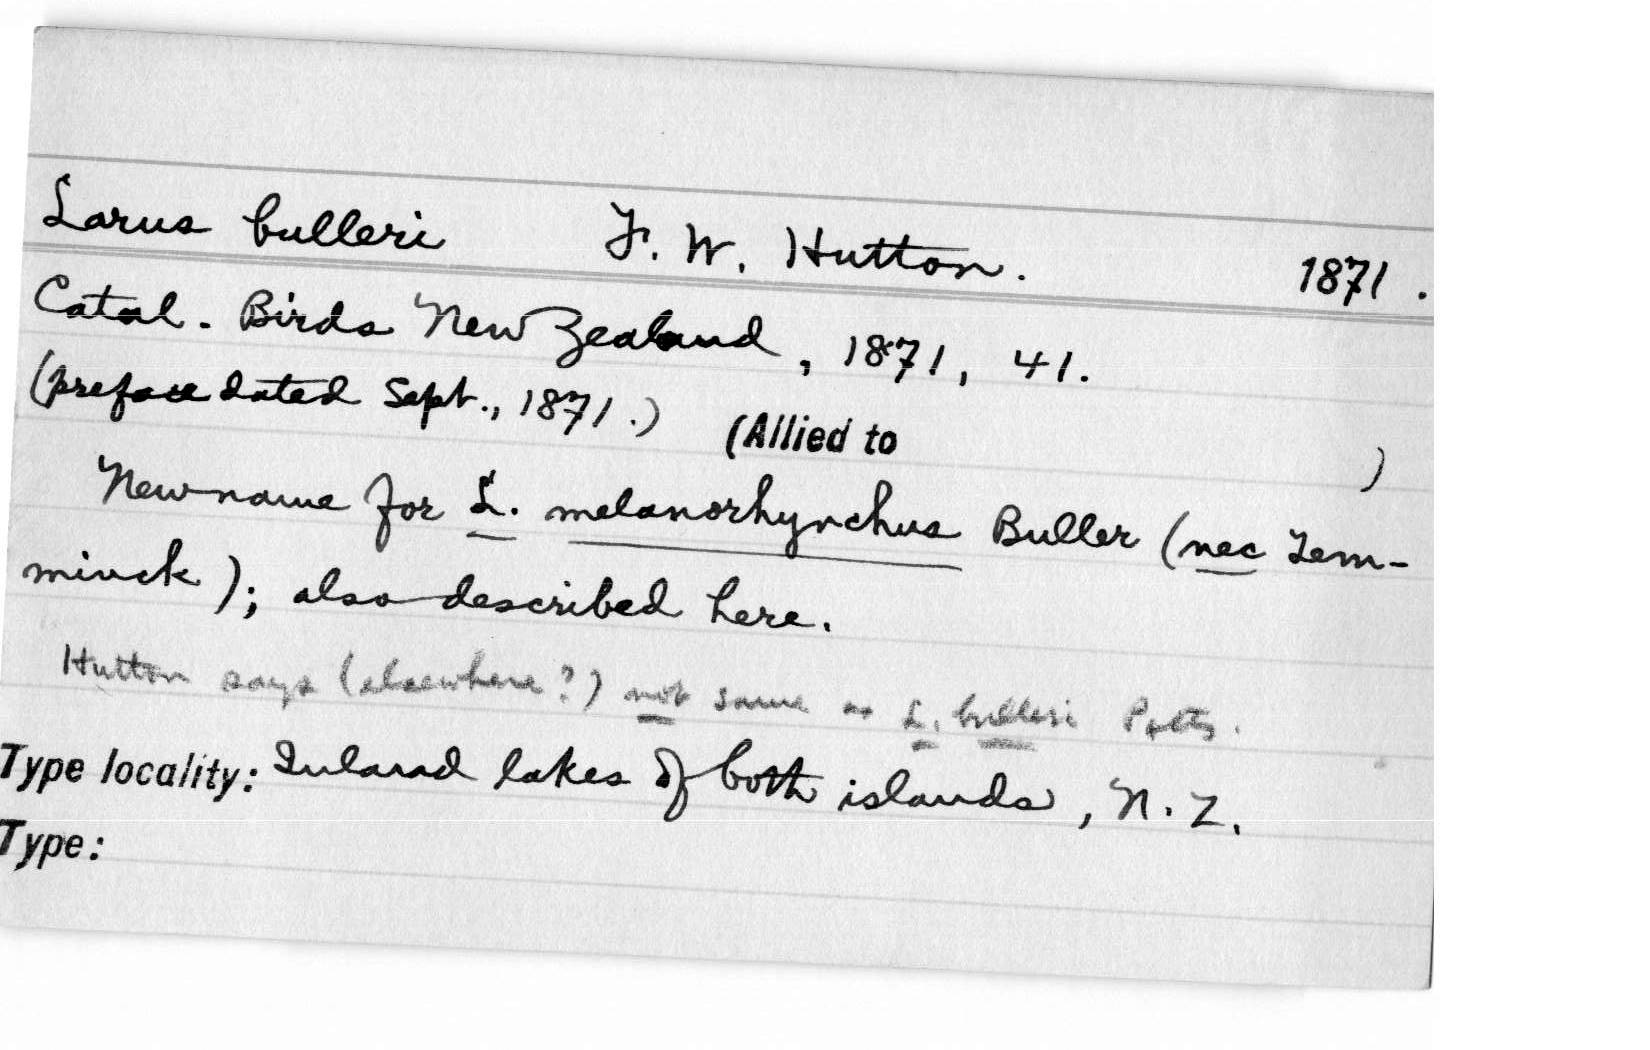 Larus bulleri F. W. Hutton. 1871.
Catal. Birds New Zealand, 1871, 41.
(preface dated Sept., 1871.) (Allied to )
New name for L. melanorhynchus Buller (nec Tem-
minck); also described here.
Hutton says (elsewhere?) not same as L. bulleri Potts.
Type locality: Inland lakes of both islands, N. Z.
Type: